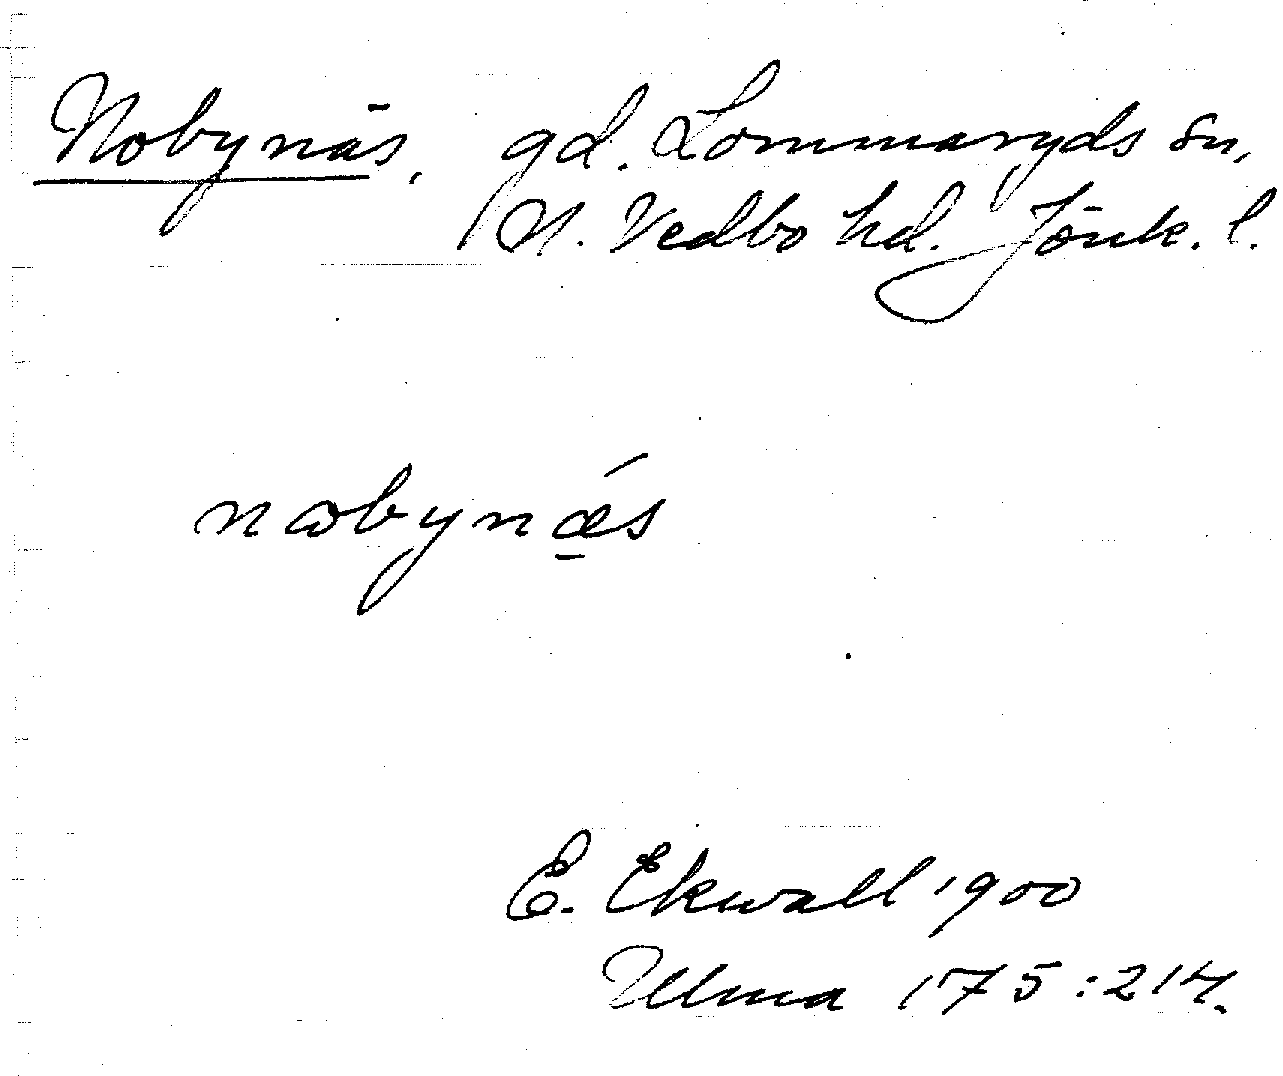 Nobynäs, gd. Lommaryds sn,
N. Vedbo hd. Jönk. l.
nωbynǽ̱s
E. Ekwall 1900
Ulma 175:214.